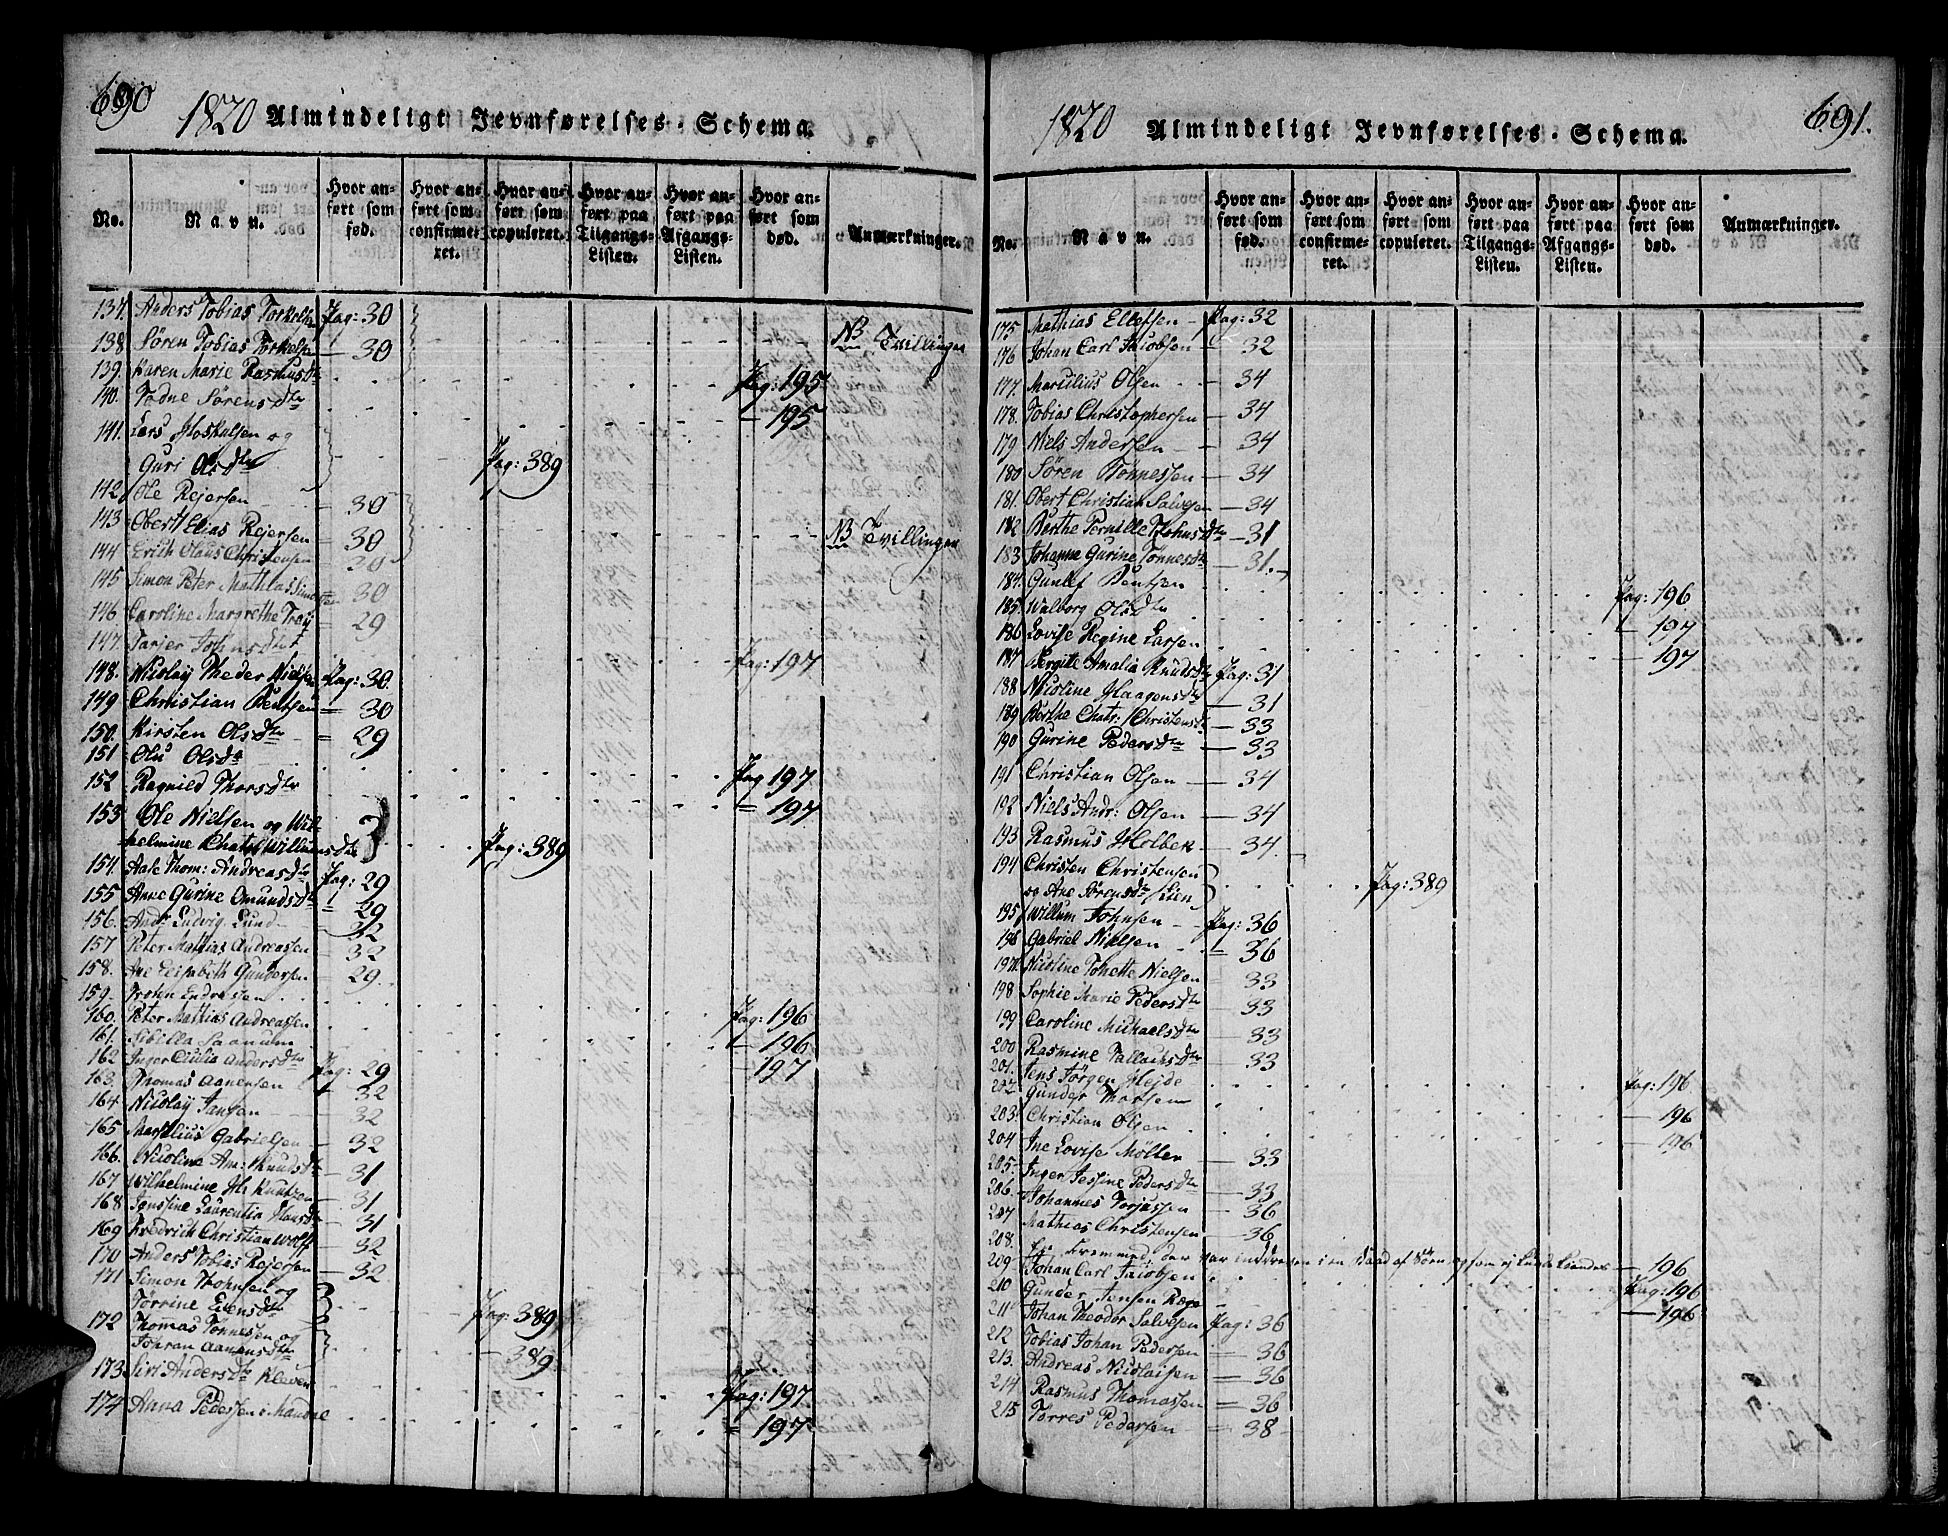 690
1820 Almindeligt Jevnførelses-Schema.
No.
Navn.
Hvor anført som fød.
Hvor anført som confirmeret.
Hvor anført som copuleret.
Hvor anført paa Tilgangs-Listen.
Hvor anført paa Afgangs-Listen.
Hvor anført som død.
Anmærkninger.
137. Anders Tobias Torkelsen Pag: 30
138 Søren Tobias Torkelsen — 30 NB Tvillinger
139. Karen Marie Rasmusdtr Pag: 195
140. Todne Sørensdtr — 195
141. Lars Hoskulsen og
Guri Olsdtr Pag: 389
142. Ole Rejersen — 30
143 Obert Elias Rejersen — 30 NB Tvillinger
144 Erich Olaus Christensen — 30
145 Simon Peter Mathias Simonsen 30
146 Caroline Margrethe Trøy — 29
147. Tarjer Johnsdtr Pag: 197
148. Nicolay Theder Nielsen Pag: 30.
149 Christian Bentsen = 30
150. Kirsten Olsdtr = 29
151 Olu Olsdtr Pag 197
152 Ragnild Thorsdtr = 197
153 Ole Nielsen og Wil-
helmine Chatr Willumsdtr Pag: 389
154. Aase Thom: Andreasdtr Pag: 29
155 Anne Gurine Omundsdtr — 29
156. Andr Ludvig Lund — 32
157 Peter Mathias Andreassen — 32
158. Ane Elisabeth Gundersen — 29.
159. Endresen Pag: 196
160. Peter Mathias Andreassen — 196
161. Sibilla Saanum — 197
162 Inger Cicilia Andersdtr Pag: 29
163. Thomas Aanensen — 32
164 Nicolay Jansen — 32
165 Marselius Gabrielsen — 32
166. Nicoline An: Knudsdtr — 31
167 Wilhelmine H: Knutzon — 31
168. Jenssine Laurentia Hansdtr — 31
169 Fredrich Christian Wolff — 32
170 Anders Tobias Rejersen — 32
171 Simon Johnsen og
Torrine Evensdtr Pag: 389
172 Thomas Tønnesen og
Johran Aanensdtr — 389
173 Siri Andersdtr Kleven Pag: 197
174 Anna Pedersen i Mandal = 197
1820 Almindeligt Jevnførelses-Schema.
691.
No.
Navn.
Hvor anført som fød.
Hvor anført som confirmeret.
Hvor anført som copuleret.
Hvor anført paa Tilgangs-Listen.
Hvor anført paa Afgangs-Listen.
Hvor anført som død.
Anmærkninger.
175 Mathias Ellefsen — Pag: 32
176 Johan Carl Jacobsen — 32
177. Marcilius Olsen — 34
178. Tobias Christophersen — 34
179 Niels Andersen — 34
180 Søren Tønnessen — 34
181. Obert Christian Salvesen — 34
182 Berthe Pernille Johnsdtr — 31
183 Johanne Gurine Tønnesdtr — 31.
184. Gunlef Bentsen Pag: 196
185. Walborg Olsdtr — 197
186 Lovise Regine Larsen — 197
187 Bergite Amalia Knudsdtr Pag: 31
188 Nicoline Haagensdtr — 31
189 Berthe Chatr: Christensdtr — 33
190 Gurine Pedersdtr — 33
191 Christian Olsen — 34
192 Niels Andr: Olsen — 34
193 Rasmus Holbek — 34.
194 Christen Christensen
og Ane Sørensdtr Lien Pag: 389
195 Willum Johnsen — Pag: 36
196 Gabriel Nielsen — 36
197. Nicoline Tonette Nielsen 33
198 Sophie Marie Pedersdtr — 33
199 Caroline Michaelsdtr — 33
200 Rasmine Tallaksdtr — 33
201. Jens Jørgen Hejde Pag: 196
202 Gunder Thorsen — 196
203. Christian Olsen — 196
204 Ine Lovise Møller — 33
205. Inger Jessine Pedersdtr — 33
206. Johannes Torjussen — 36
207 Mathias Christensen — 36
208. En Fremmed, der var inddreven i en Baad af Søen og som ej kunde kiendes — 196
209 Johan Carl Jacobsen Pag: 196
210 Gunder Jensen Røge — 196
211 Johan Theodor Salvesen Pag: 36
212 Tobias Johan Pedersen — 36
213. Andreas Nicolaisen — 36
214 Rasmus Thomassen — 36
215 Torres Pedersen — 38